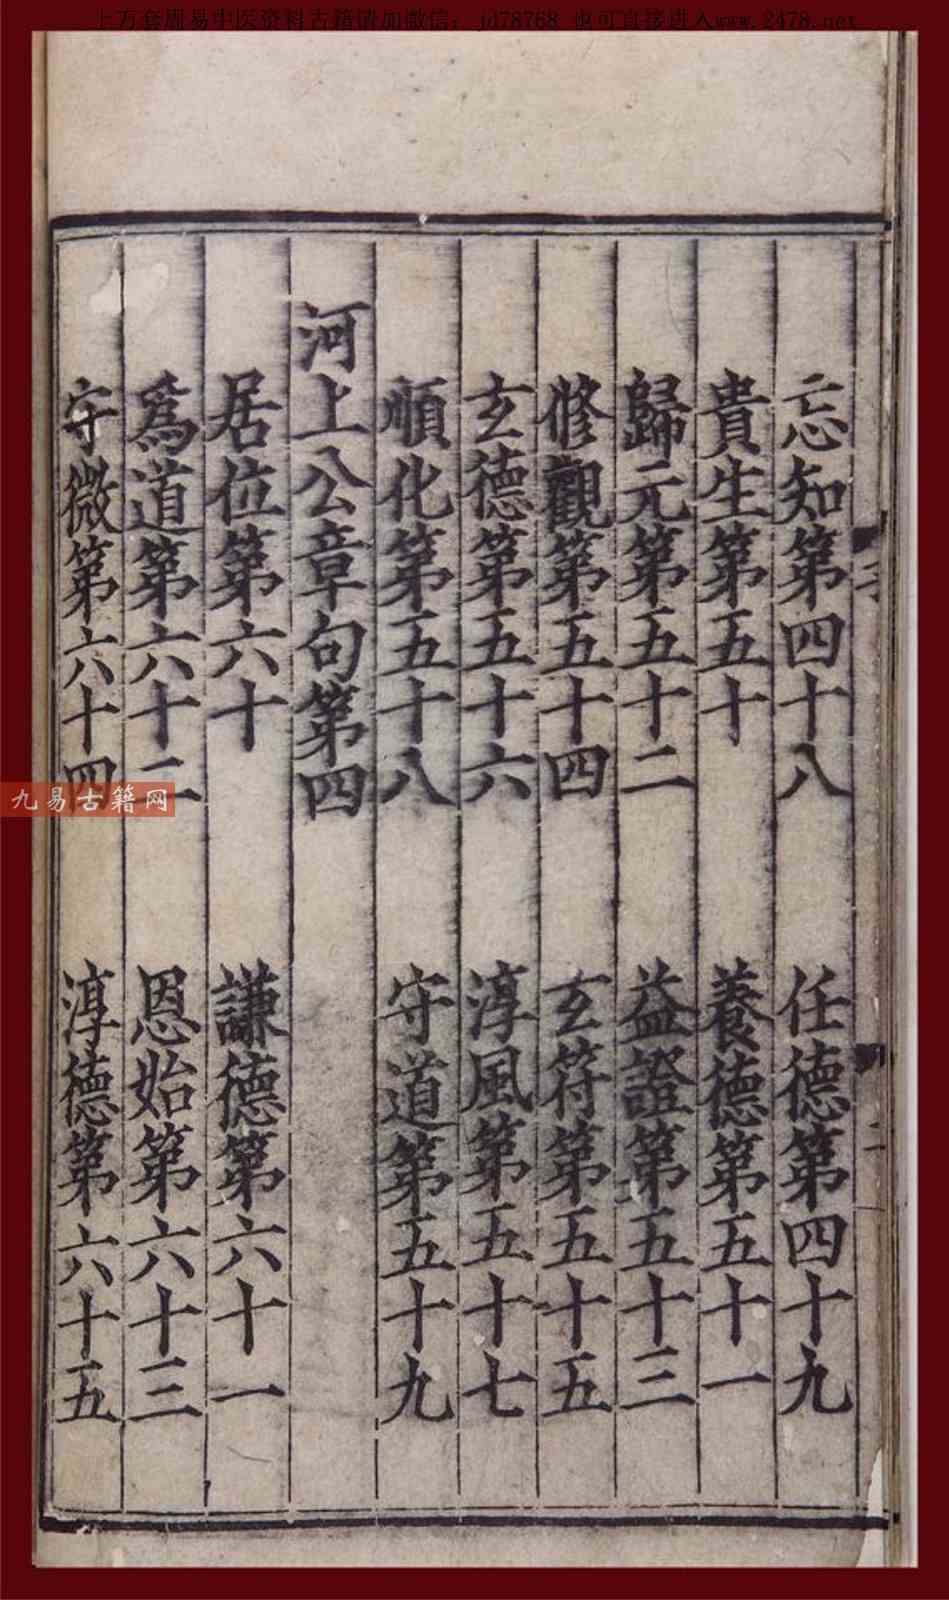 上万套周易中医资料古籍请加微信：jd78768 也可直接进入www.2478.net
忘知第四十八 任德第四十九
貴生第五十 養德第五十一
歸元第五十二 益證第五十三
修觀第五十四 玄符第五十五
玄德第五十六 淳風第五十七
順化第五十八 守道第五十九
河上公章句第四
居位第六十 謙德第六十一
爲道第六十二 恩始第六十三
守微第六十四 淳德第六十五
九易古籍网